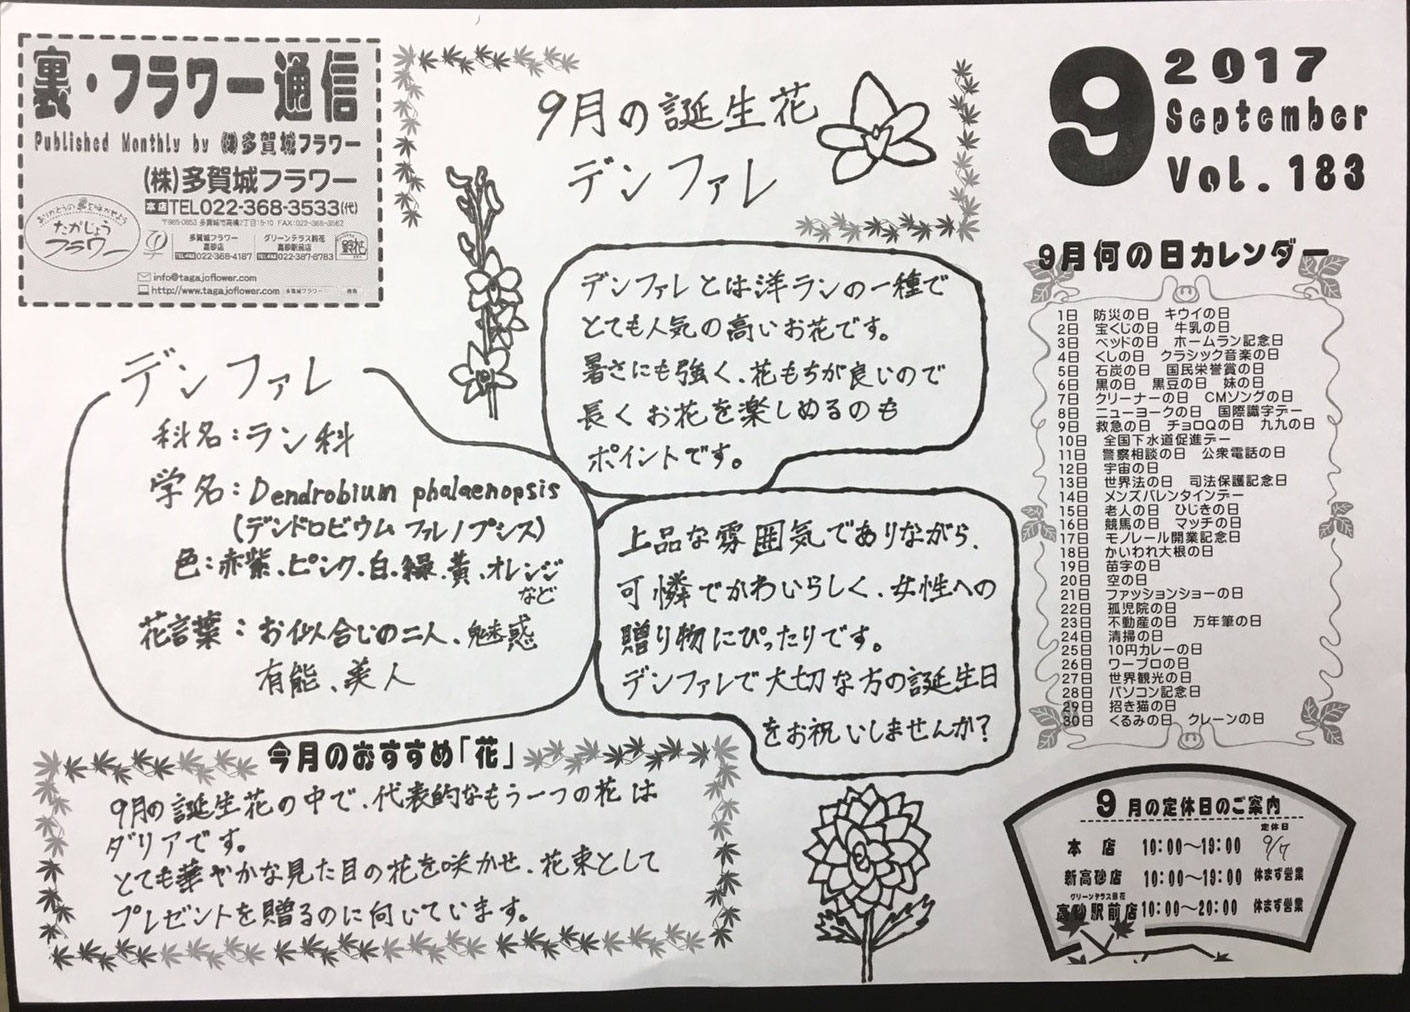 裏・フラワー通信
Published Monthly by ㈱多賀城フラワー
(株)多賀城フラワー
本店 TEL022-368-3533(代)
〒985-0853 多賀城市高橋2丁目15-10 FAX:022-368-3562
ありがとうの花を咲かせよう
たがじょう
フラワー
多賀城フラワー
高砂店
022-368-4187
グリーンテラス鈴花
高砂駅前店
022-387-8783
鈴花
info@tagajoflower.com
http://www.tagajoflower.com
多賀城フラワー
検索
9月の誕生花
デンファレ
9
2017
September
Vol. 183
デンファレとは洋ランの一種で
とても人気の高いお花です。
暑さにも強く、花もちが良いので
長くお花を楽しめるのも
ポイントです。
デンファレ
科名：ラン科
学名：Dendrobium phalaenopsis
(デンドロビウム ファレノプシス)
色：赤紫、ピンク、白、緑、黄、オレンジ
など
花言葉：お似合いの二人、魅惑
有能、美人
上品な雰囲気でありながら、
可憐でかわいらしく、女性への
贈り物にぴったりです。
デンファレで大切な方の誕生日
をお祝いしませんか?
今月のおすすめ「花」
9月の誕生花の中で、代表的なもう一つの花は
ダリアです。
とても華やかな見た目の花を咲かせ、花束として
プレゼントを贈るのに向いています。
9月何の日カレンダー
1日 防災の日 キウイの日
2日 宝くじの日 牛乳の日
3日 ベッドの日 ホームラン記念日
4日 くしの日 クラシック音楽の日
5日 石炭の日 国民栄誉賞の日
6日 黒の日 黒豆の日 妹の日
7日 クリーナーの日 CMソングの日
8日 ニューヨークの日 国際識字デー
9日 救急の日 チョロQの日 九九の日
10日 全国下水道促進デー
11日 警察相談の日 公衆電話の日
12日 宇宙の日
13日 世界法の日 司法保護記念日
14日 メンズバレンタインデー
15日 老人の日 ひじきの日
16日 競馬の日 マッチの日
17日 モノレール開業記念日
18日 かいわれ大根の日
19日 苗字の日
20日 空の日
21日 ファッションショーの日
22日 孤児院の日
23日 不動産の日 万年筆の日
24日 清掃の日
25日 10円カレーの日
26日 ワープロの日
27日 世界観光の日
28日 パソコン記念日
29日 招き猫の日
30日 くるみの日 クレーンの日
9月の定休日のご案内
定休日
本 店 10:00～19:00 9/7
新高砂店 10:00～19:00 休まず営業
グリーンテラス鈴花
高砂駅前店 10:00～20:00 休まず営業